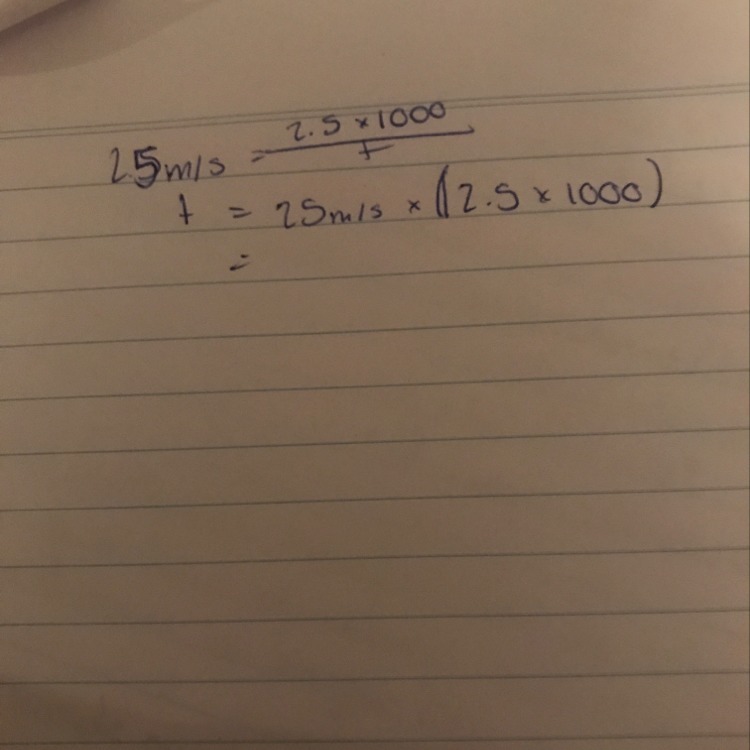 25m/s = 2.5 × 1000 / t
t = 25m/s × (2.5 × 1000)
=